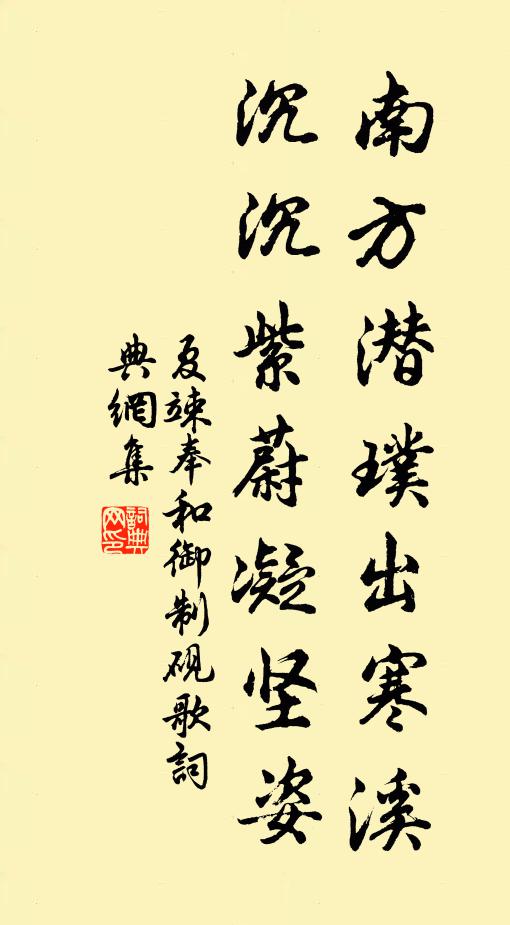 南方潜璞出寒溪
沉沉紫蔚凝坚姿
夏竦奉和御制砚歌詞
典網集
詞典
网印